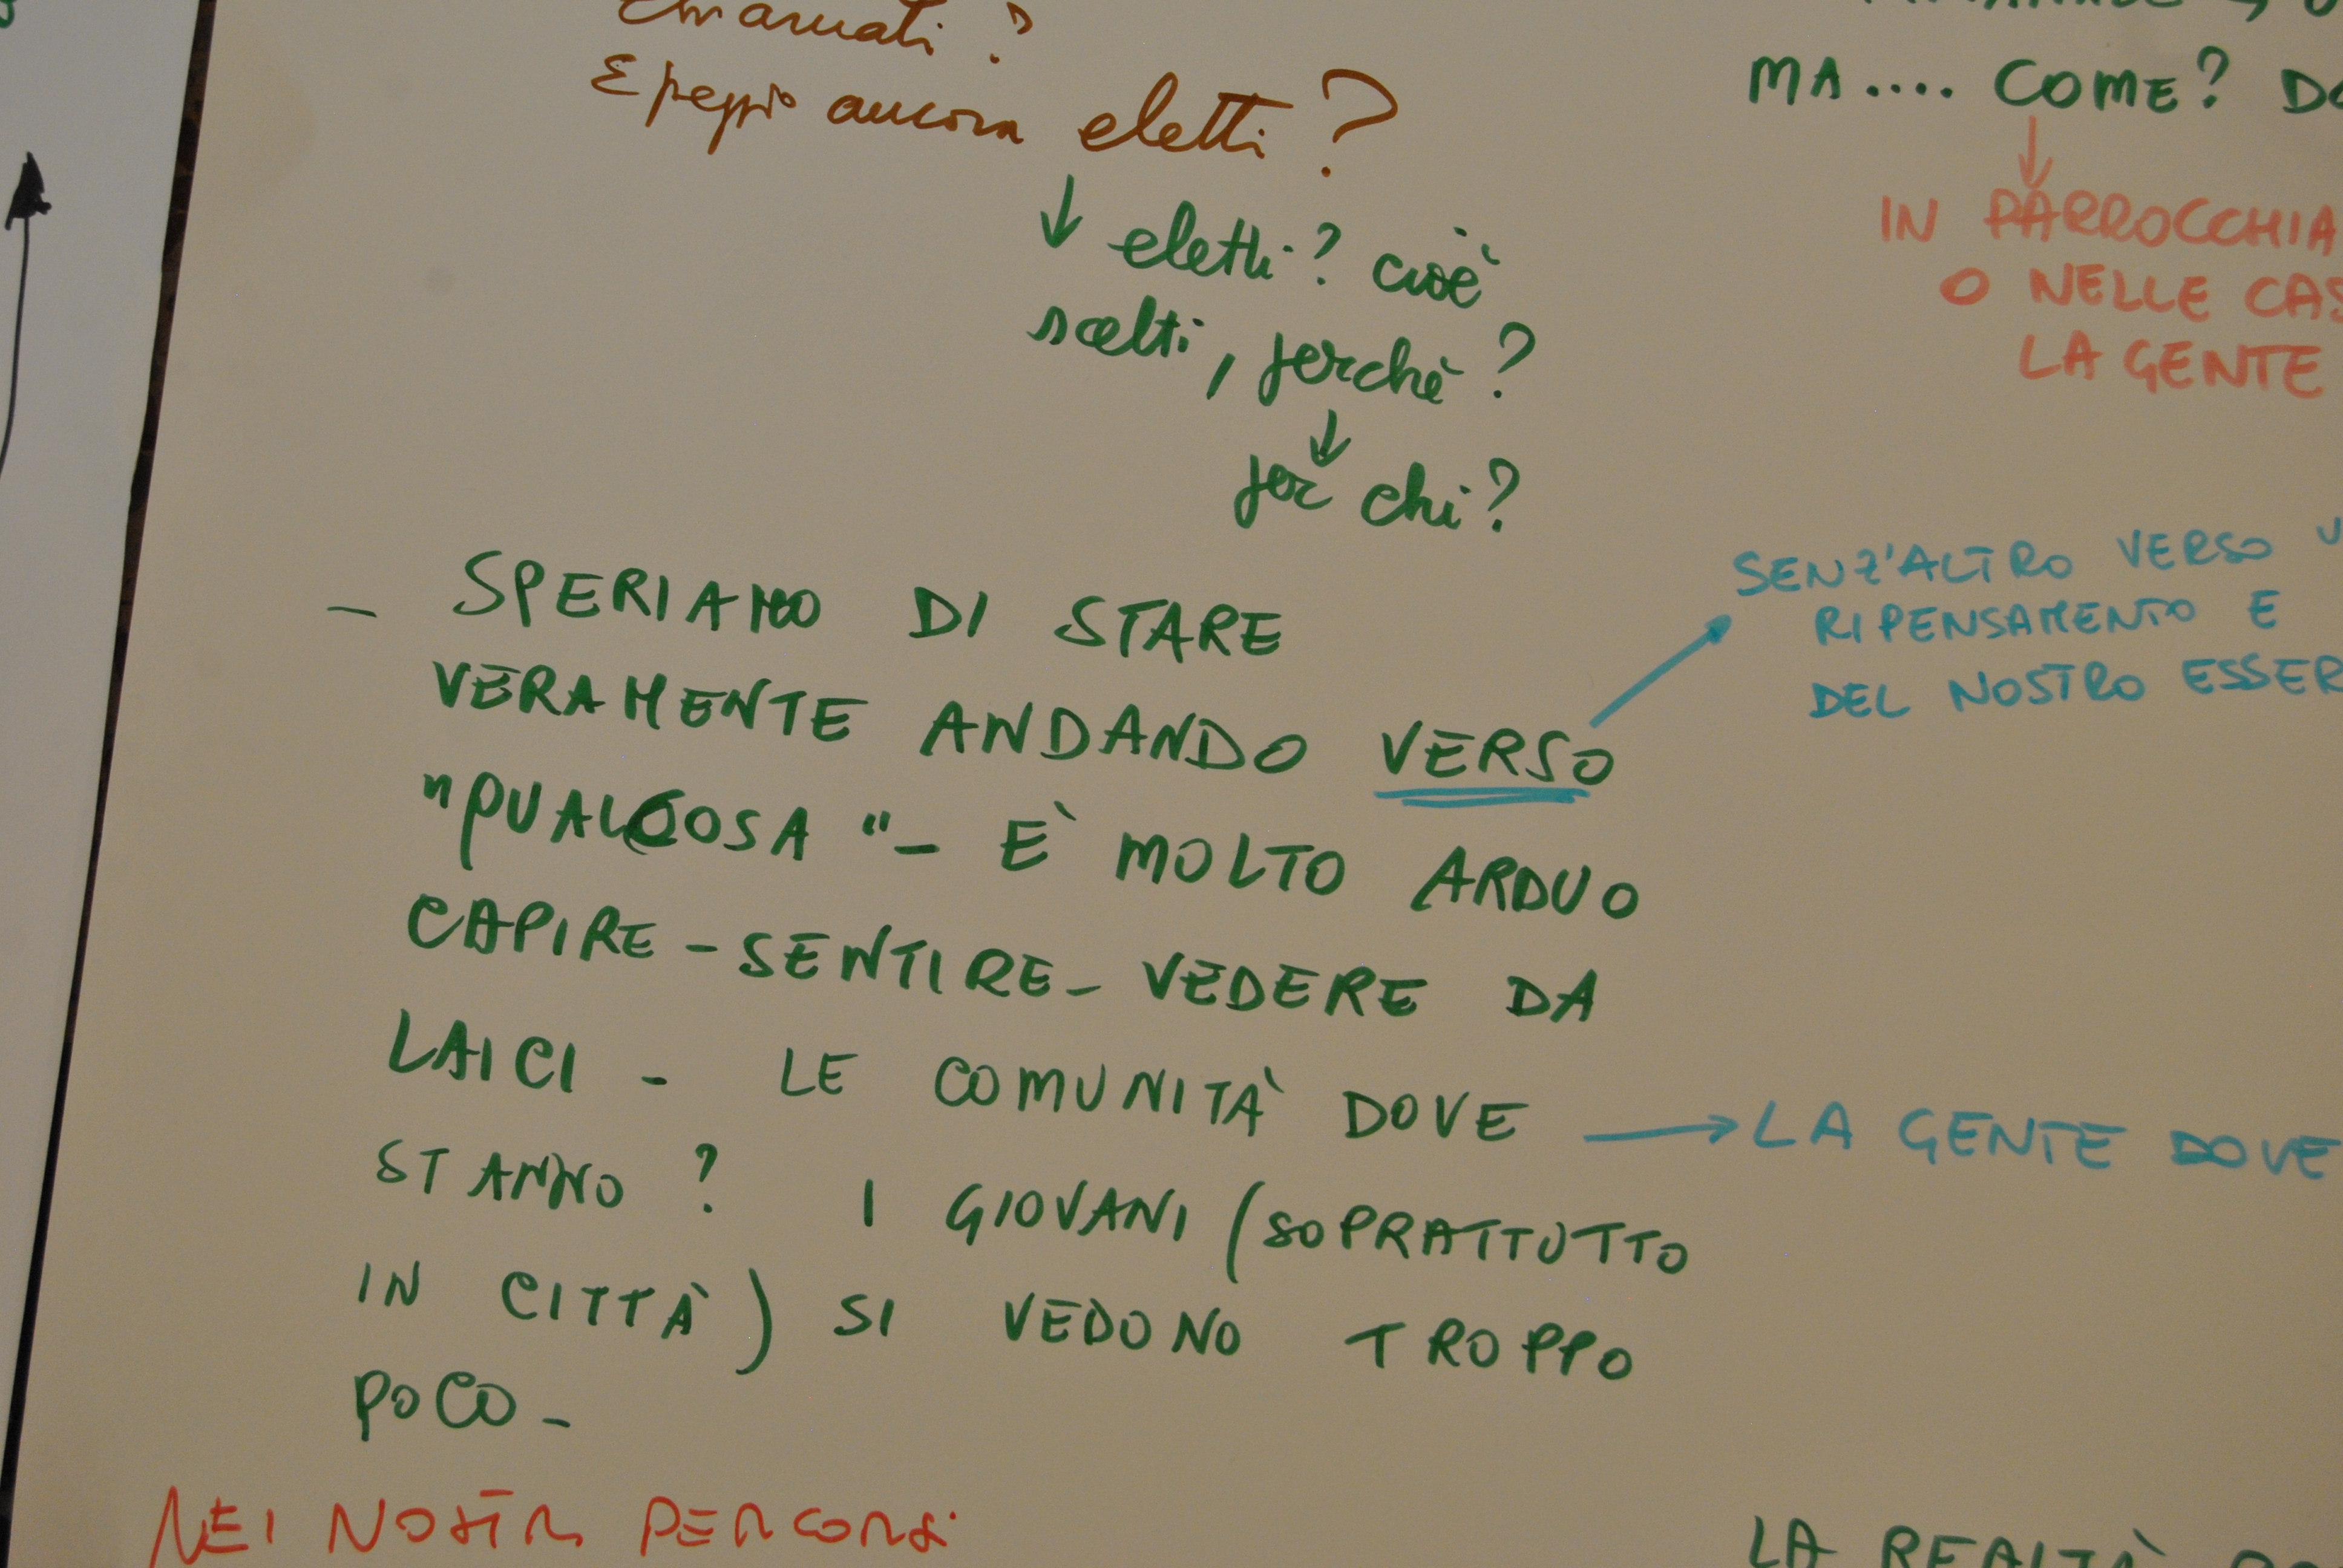 chiamati?
E peggio ancora eletti?
↓ eletti? cioè
scelti, perchè?
↓
per chi?
– SPERIAMO DI STARE
VERAMENTE ANDANDO VERSO
"QUALCOSA" – E' MOLTO ARDUO
CAPIRE – SENTIRE – VEDERE DA
LAICI – LE COMUNITÀ DOVE
STANNO? I GIOVANI (SOPRATTUTTO
IN CITTÀ) SI VEDONO TROPPO
POCO –
NEI NOSTRI PERCORSI
MA.... COME?
↓
IN PARROCCHIA
O NELLE
LA GENTE
SENZ'ALTRO VERSO
RIPENSAMENTO E
DEL NOSTRO
→ LA GENTE DOVE
LA REALTÀ